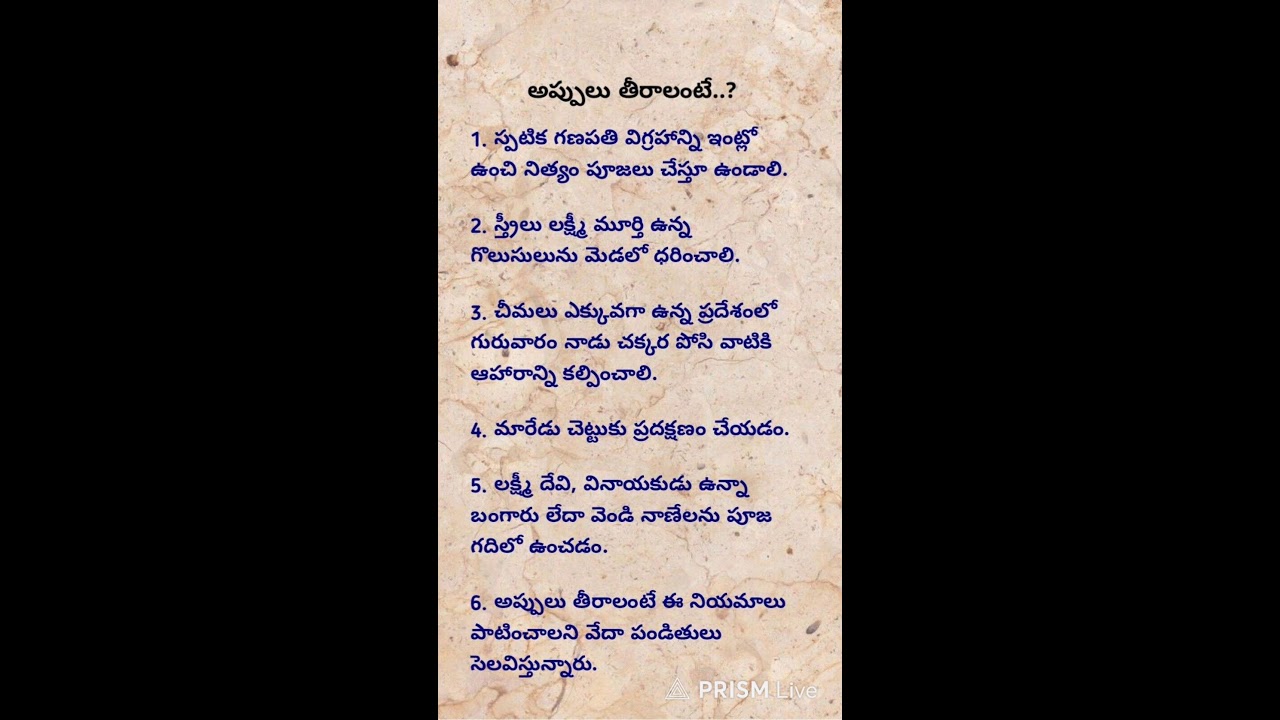 అప్పులు తీరాలంటే..?
1. స్పటిక గణపతి విగ్రహాన్ని ఇంట్లో
ఉంచి నిత్యం పూజలు చేస్తూ ఉండాలి.
2. స్త్రీలు లక్ష్మీ మూర్తి ఉన్న
గొలుసులును మెడలో ధరించాలి.
3. చీమలు ఎక్కువగా ఉన్న ప్రదేశంలో
గురువారం నాడు చక్కర పోసి వాటికి
ఆహారాన్ని కల్పించాలి.
4. మారేడు చెట్టుకు ప్రదక్షణం చేయడం.
5. లక్ష్మీ దేవి, వినాయకుడు ఉన్నా
బంగారు లేదా వెండి నాణేలను పూజ
గదిలో ఉంచడం.
6. అప్పులు తీరాలంటే ఈ నియమాలు
పాటించాలని వేదా పండితులు
సెలవిస్తున్నారు.
PRISM Live